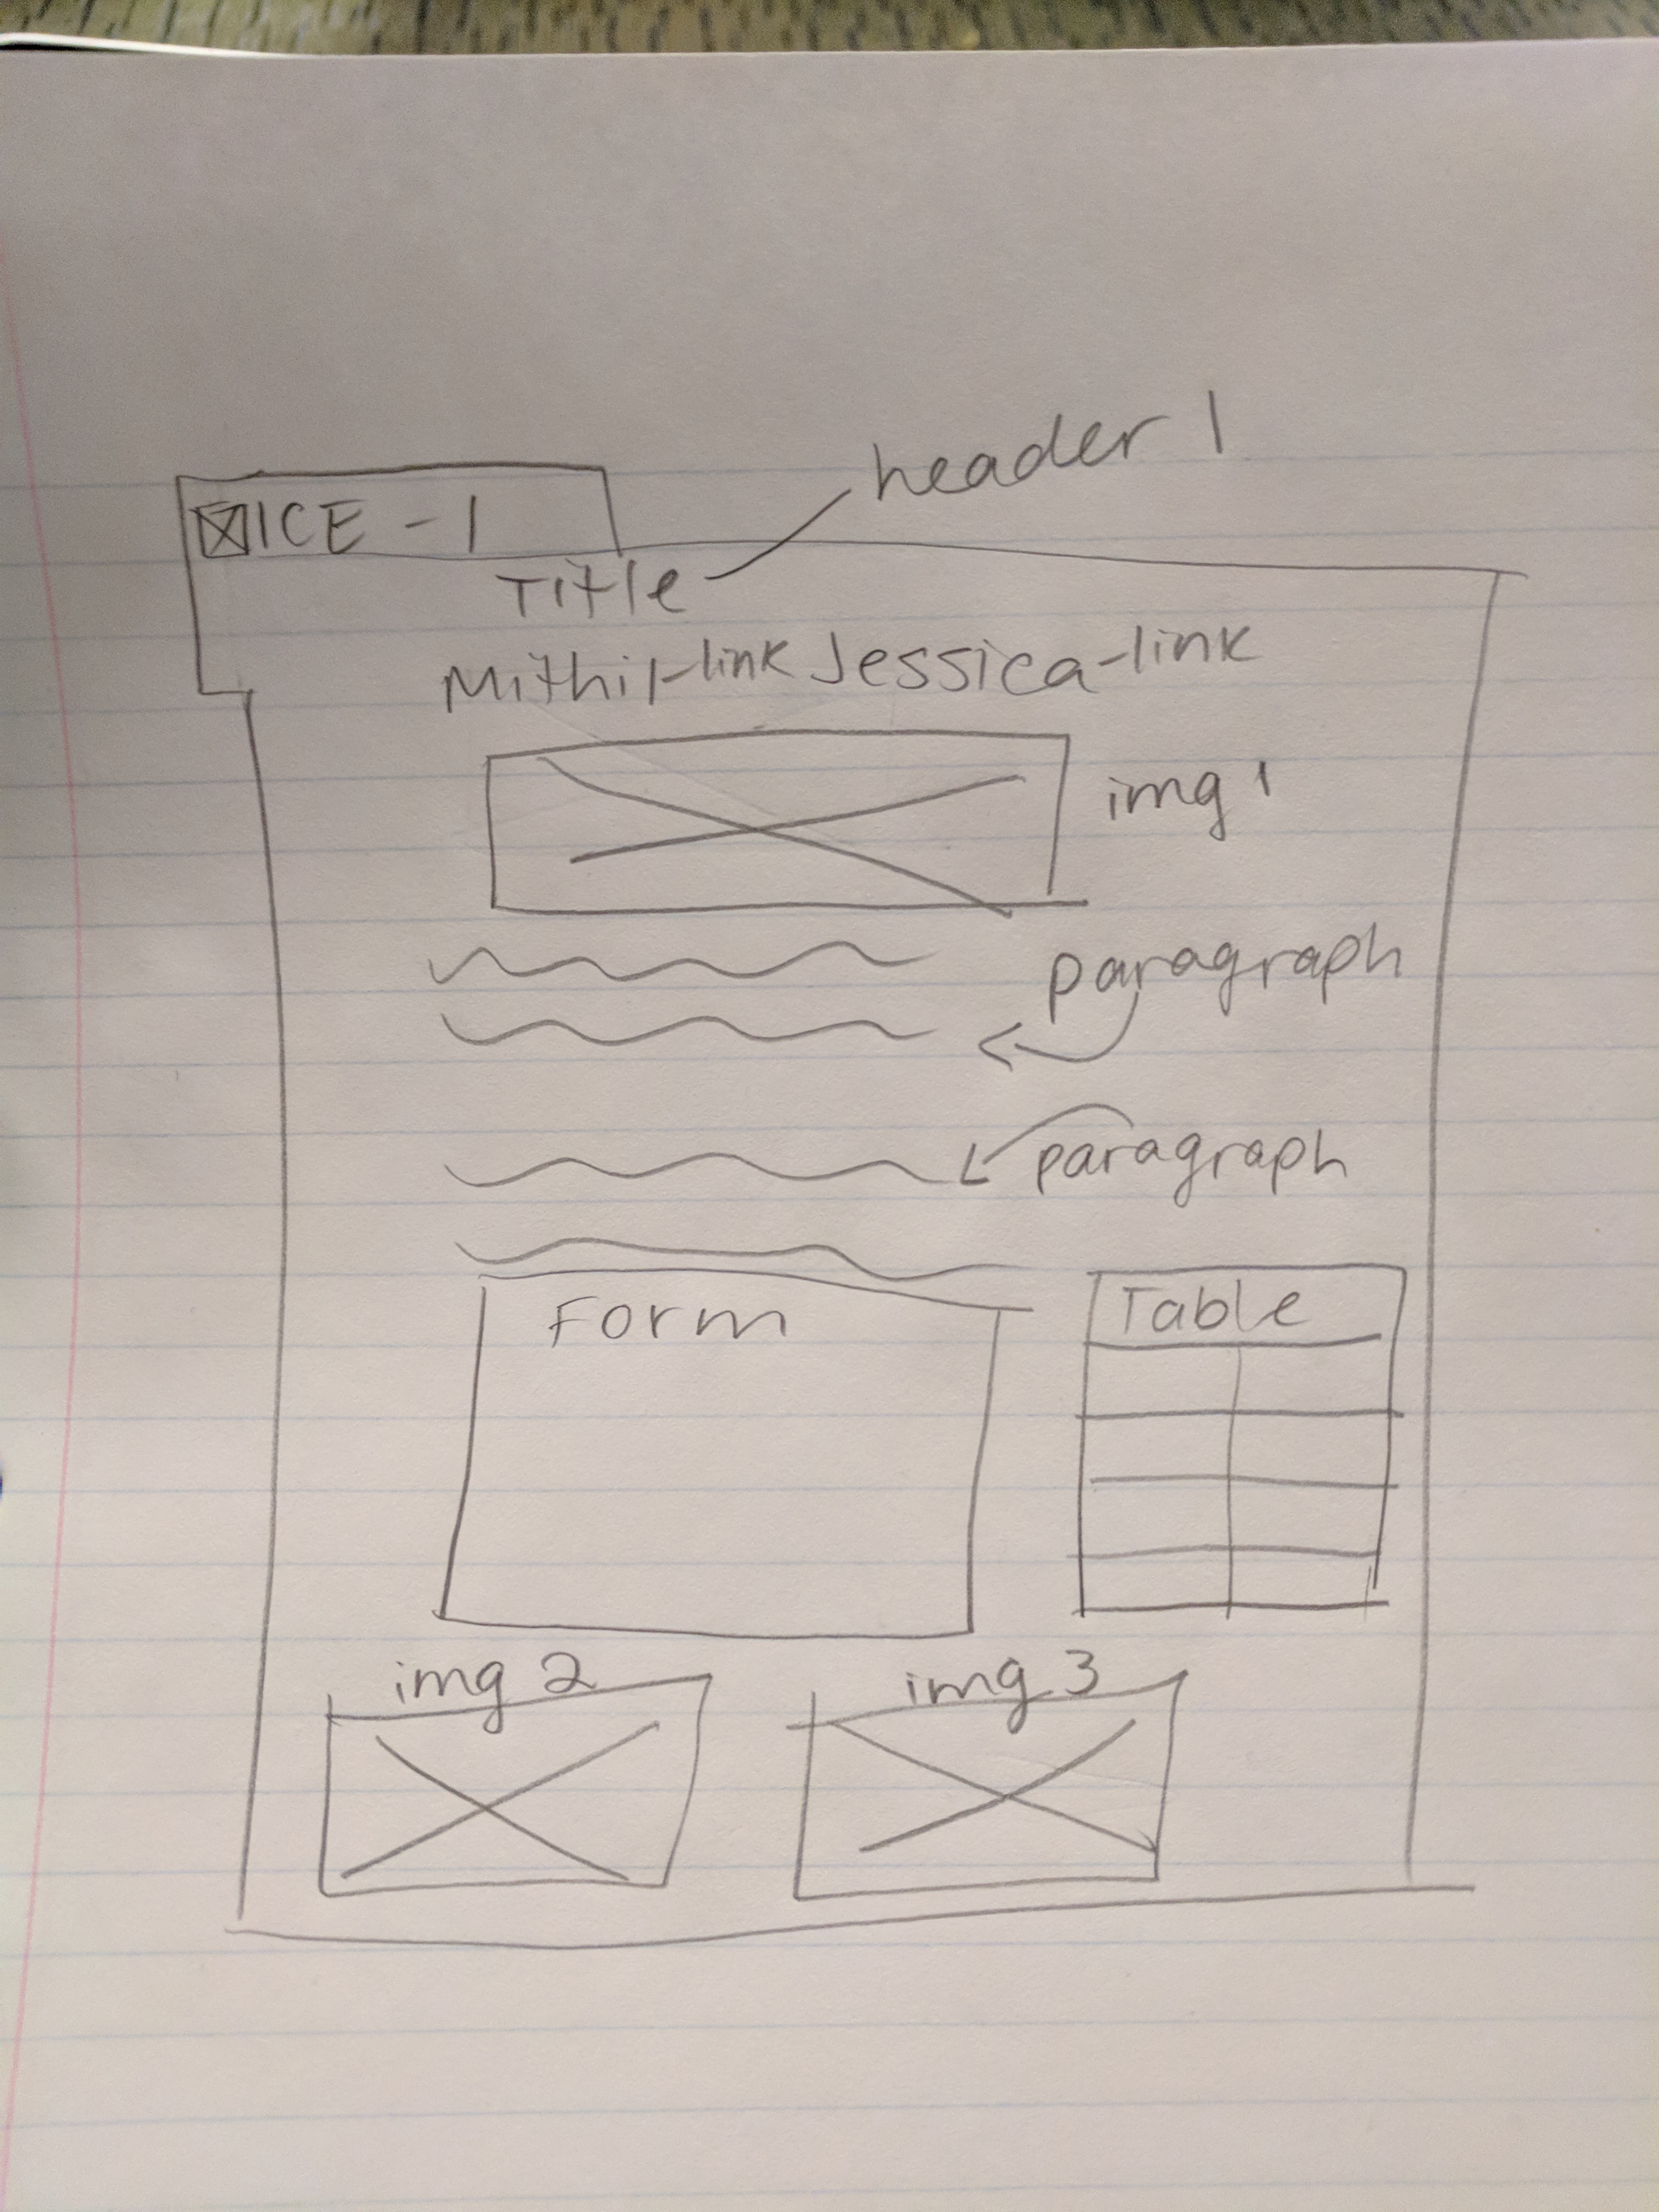 header 1
ICE - 1
Title
Mithil-link Jessica-link
img 1
paragraph
paragraph
Form
Table
img 2
img 3